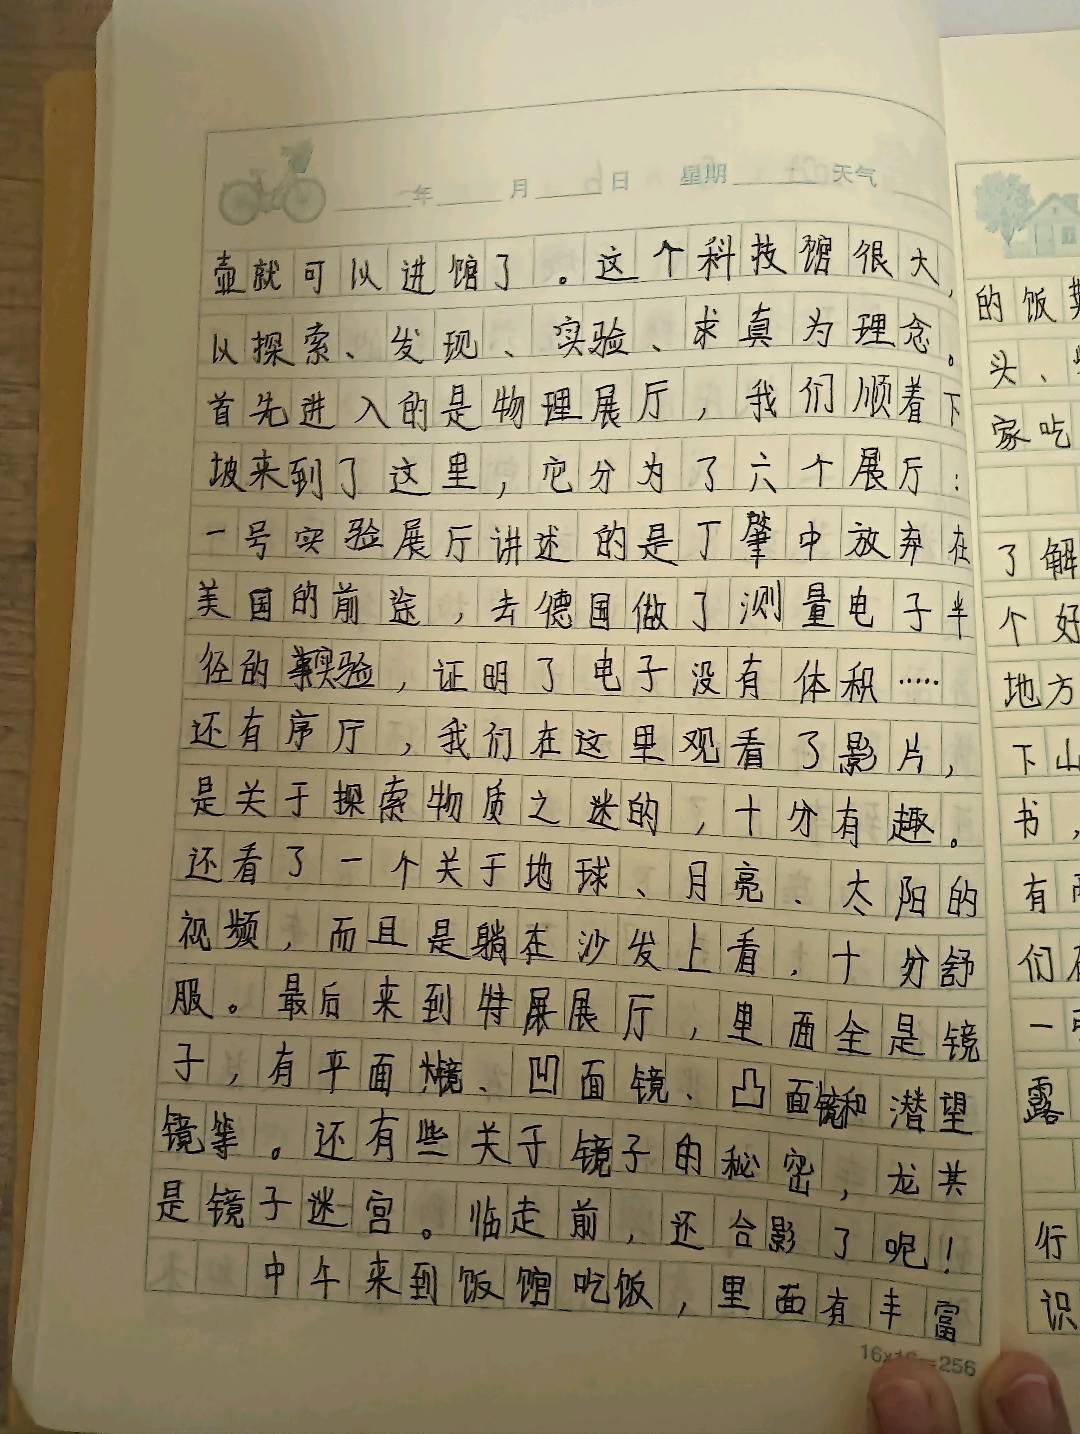 年 月 日 星期 天气
壶就可以进馆了。这个科技馆很大,
以探索、发现、实验、求真为理念。
首先进入的是物理展厅,我们顺着下
坡来到了这里,它分为了六个展厅:
一号实验展厅讲述的是丁肇中放弃在
美国的前途,去德国做了测量电子半
径的实验,证明了电子没有体积……
还有序厅,我们在这里观看了影片,
是关于探索物质之迷的,十分有趣。
还看了一个关于地球、月亮、太阳的
视频,而且是躺在沙发上看,十分舒
服。最后来到特展展厅,里面全是镜
子,有平面镜、凹面镜、凸面镜和潜望
镜等。还有些关于镜子的秘密,龙其
是镜子迷宫。临走前,还合影了呢!
中午来到饭馆吃饭,里面有丰富
16×16=256
的饭
头、
家吃
了解
个好
地方
下山
书,
有
们在
一
露
行
识